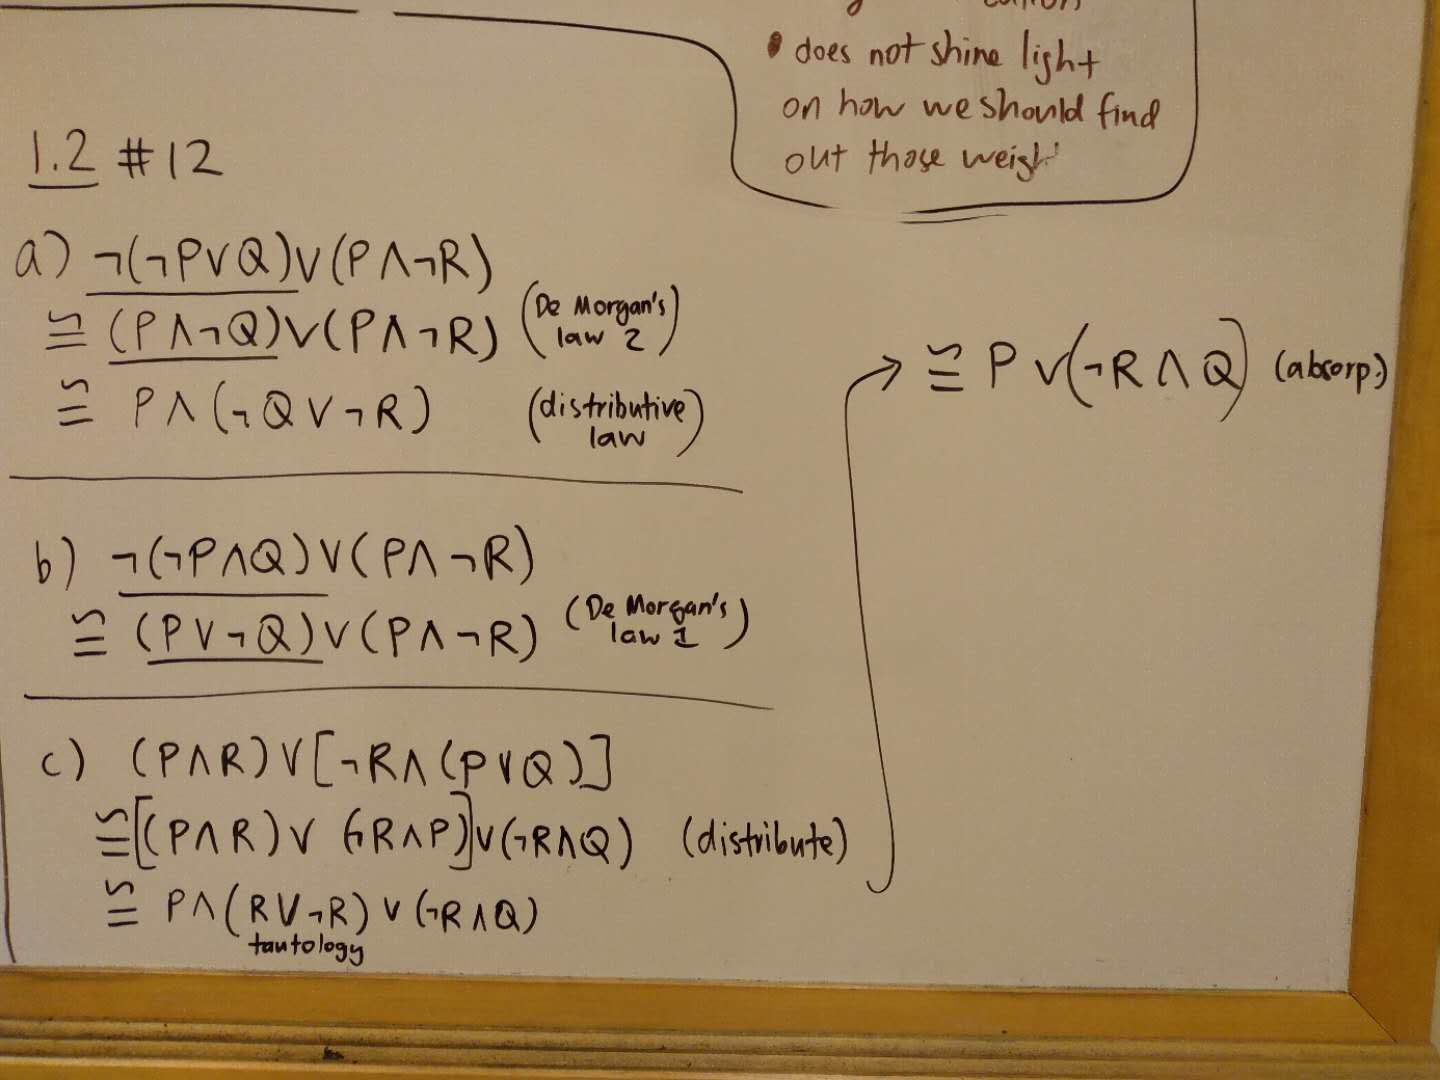 • does not shine light
on how we should find
out those
1.2 #12
a) ¬(¬P∨Q)∨(P∧¬R)
≌ (P∧¬Q)∨(P∧¬R) (De Morgan's law 2)
≌ P∧(¬Q∨¬R) (distributive law)
b) ¬(¬P∧Q)∨(P∧¬R)
≌ (P∨¬Q)∨(P∧¬R) (De Morgan's law 1)
c) (P∧R)∨[¬R∧(P∨Q)]
≌[(P∧R)∨(¬R∧P)]∨(¬R∧Q) (distribute)
≌ P∧(R∨¬R)∨(¬R∧Q)
tautology
→ ≌ P∨(¬R∧Q) (absorp.)